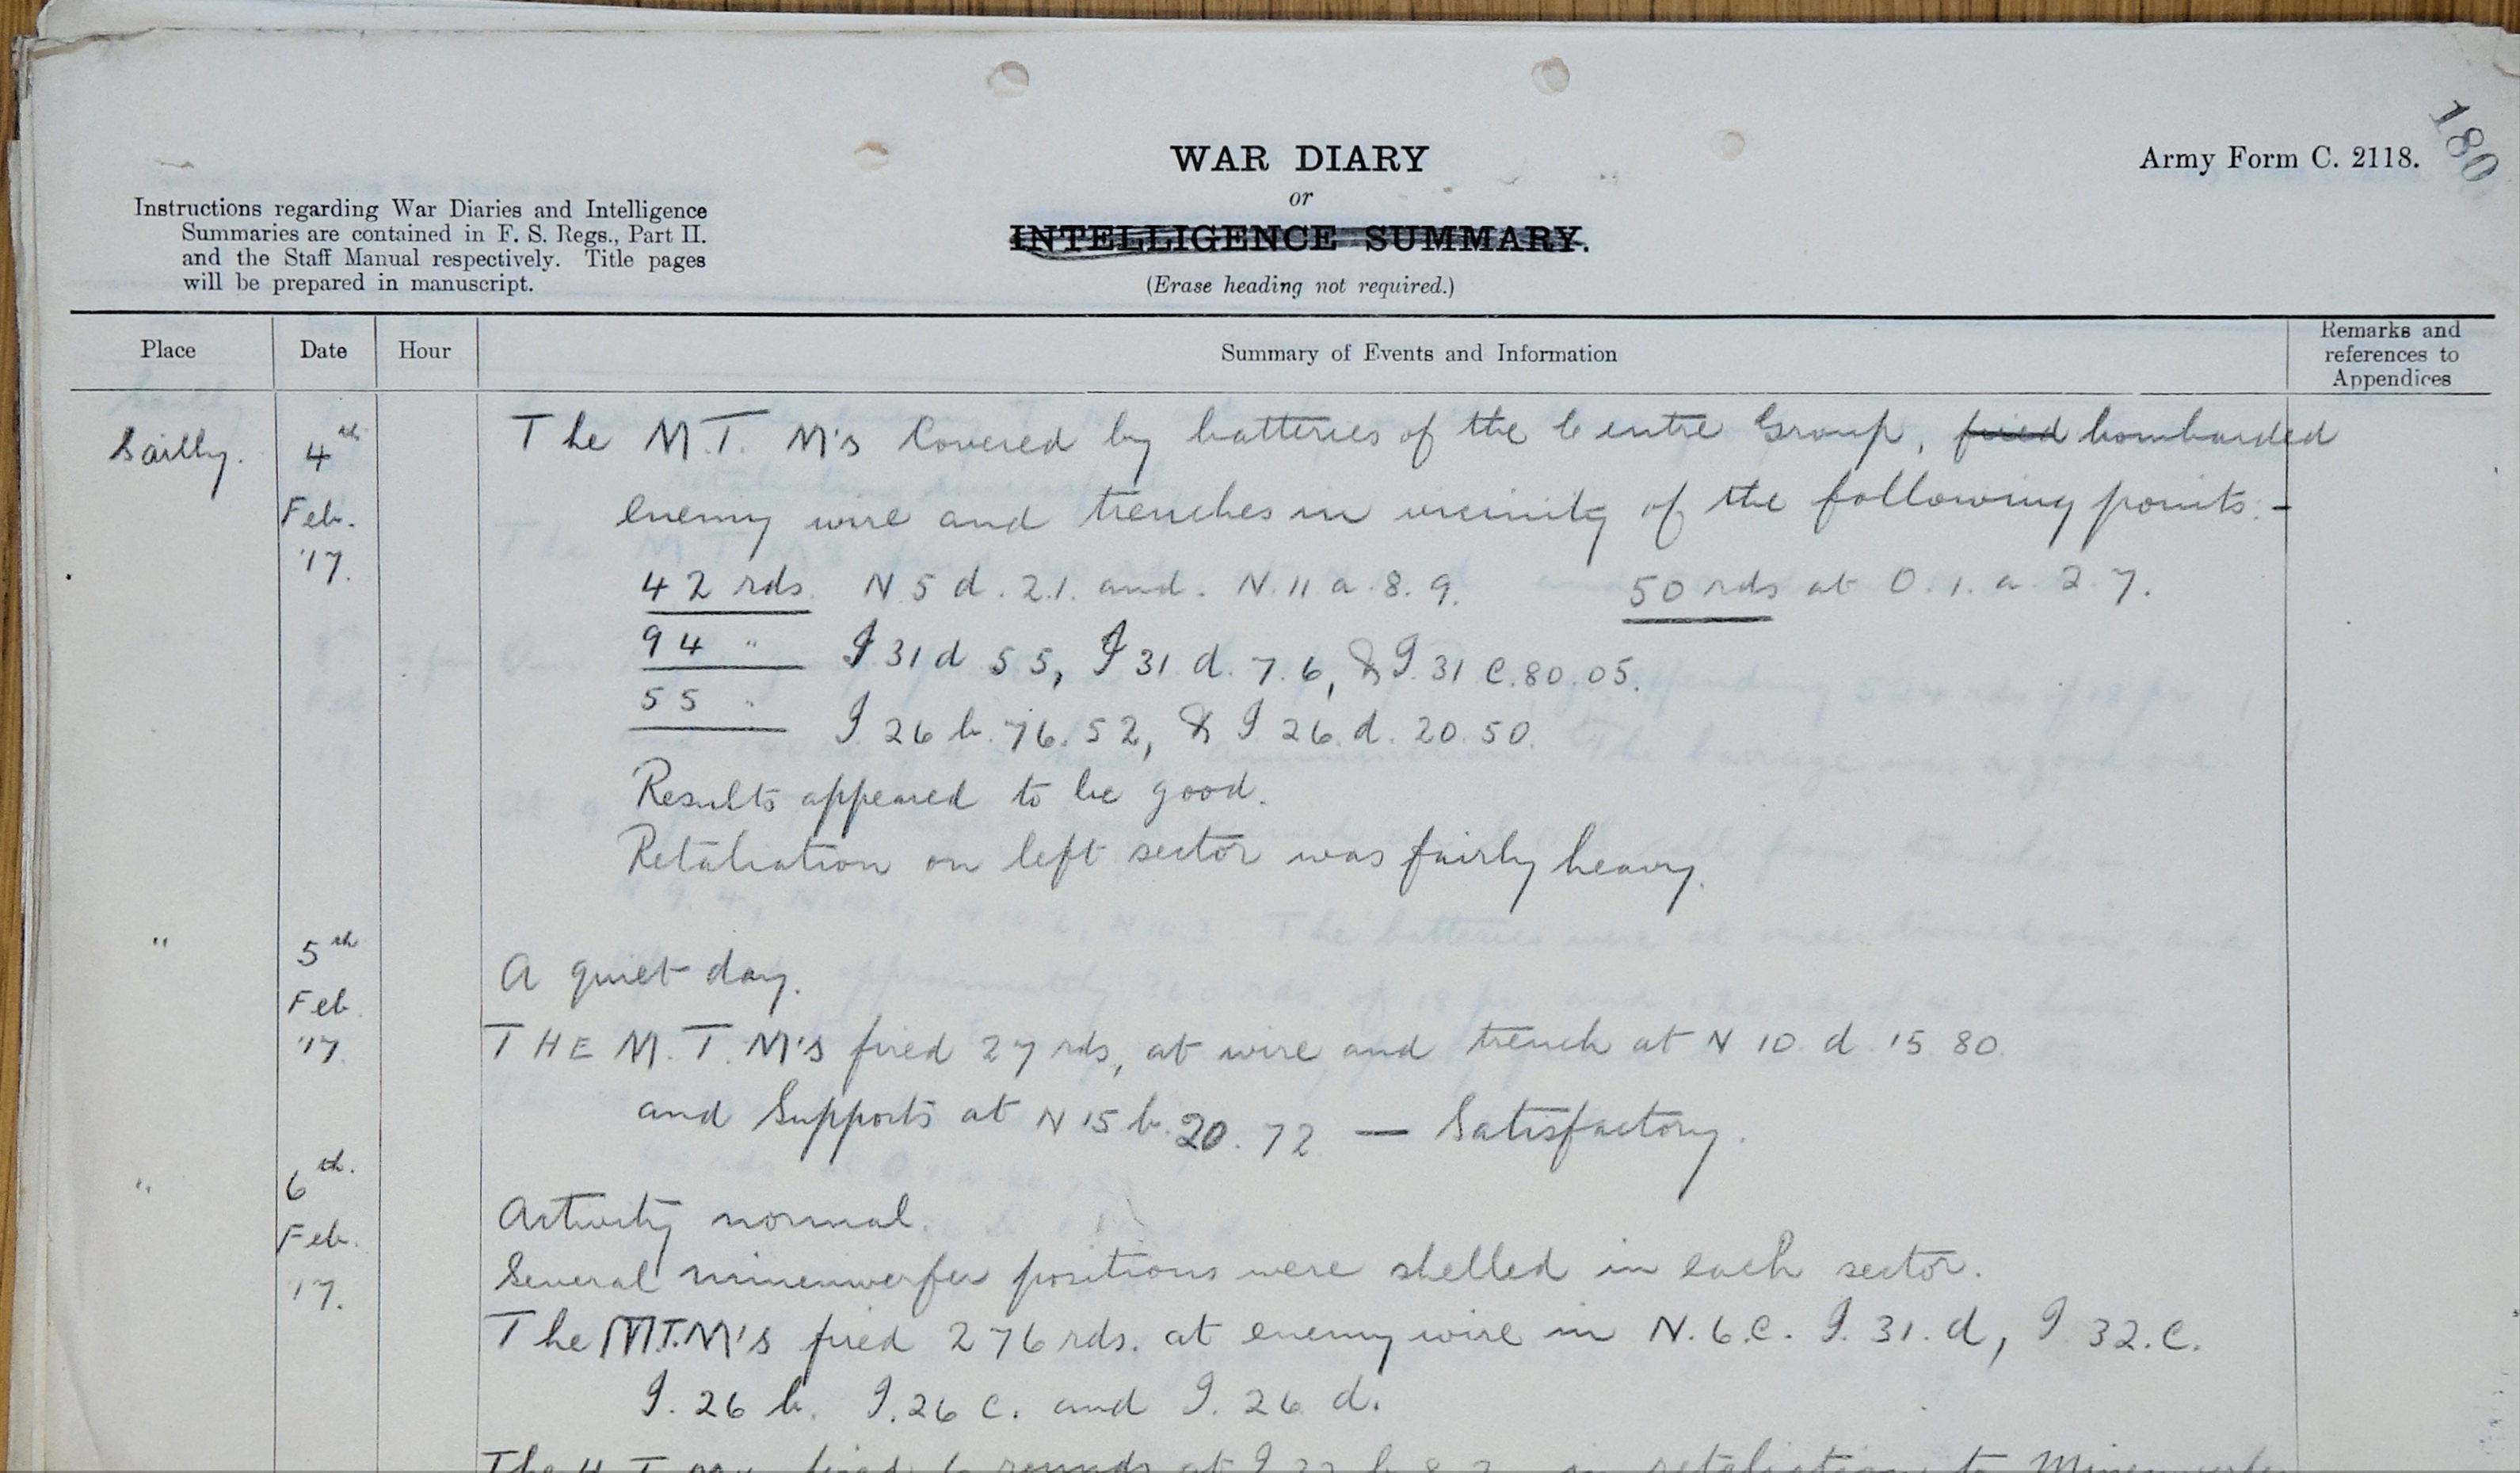 WAR DIARY
or
INTELLIGENCE SUMMARY.
(Erase heading not required.)
Army Form C. 2118.
180
Instructions regarding War Diaries and Intelligence
Summaries are contained in F. S. Regs., Part II.
and the Staff Manual respectively. Title pages
will be prepared in manuscript.
Place Date Hour Summary of Events and Information Remarks and references to Appendices
Sailly. 4th Feb. '17. The M.T. M's Covered by batteries of the Centre Group, fired bombarded
enemy wire and trenches in vicinity of the following points:-
42 rds. N 5 d. 2.1. and. N. 11 a. 8. 9. 50 rds at O. 1. a. 2. 7.
94 " I 31 d 5 5, I 31. d. 7. 6, & I. 31 C. 80. 05.
55 " I 26 b. 76. 52, & I. 26. d. 20. 50.
Results appeared to be good.
Retaliation on left sector was fairly heavy.
" 5th Feb '17. A quiet day.
THE M. T. M's fired 27 rds, at wire and trench at N 10. d. 15 80.
and Supports at N 15 b. 20. 72 — Satisfactory.
" 6th. Feb. '17. Activity normal.
Several minenwerfer positions were shelled in each sector.
The M.T.M's fired 276 rds. at enemy wire in N. 6. C. I. 31. d, I. 32. C.
I. 26 b. I. 26 C. and I. 26 d.
in retaliation to Minenwerfer